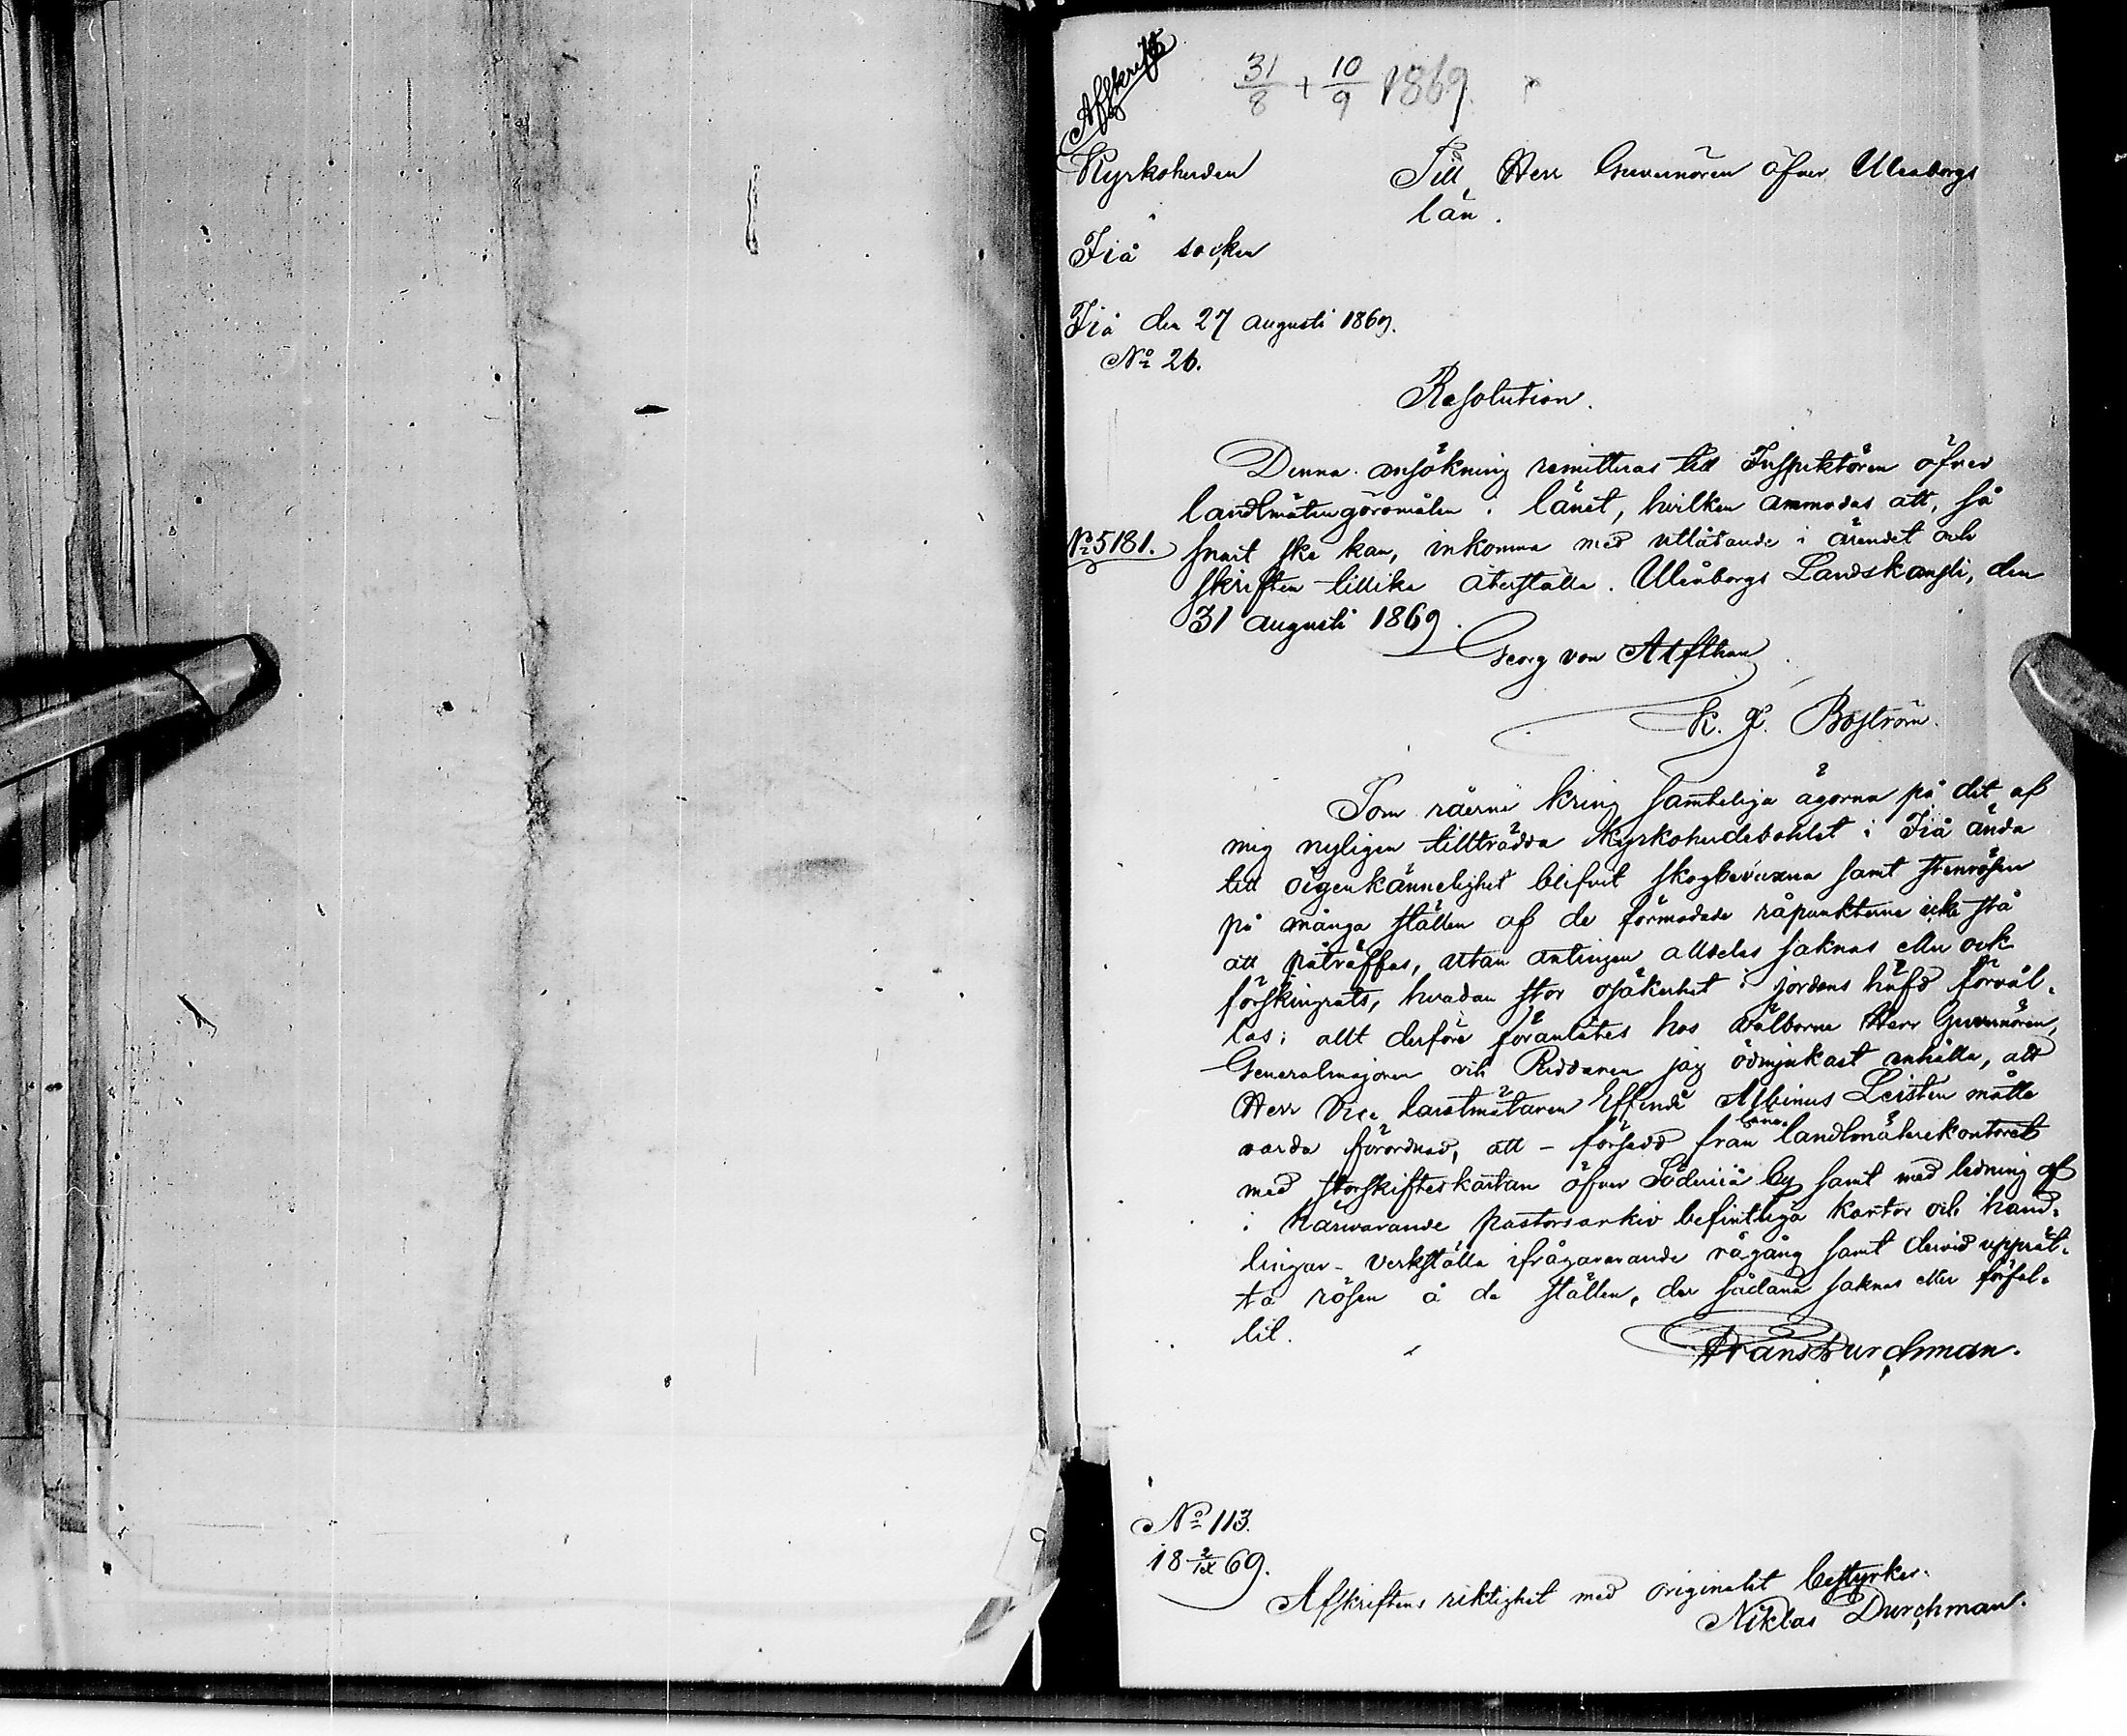 Afskrift
31/8 + 10/9 1869.
Kyrkoherden
i
Iiå socken
Till Herr Guvernören öfver Uleåborgs
län.
Iiå den 27 augusti 1869.
No 26.
Resolution.
Denna ansökning remitteras till Inspektören öfver
landtmäterigöromålen i länet, hvilken anmodas att, så
No 5181.
snart ske kan, inkomma med utlåtande i ärendet och
skriften tillika återställa. Uleåborgs Landskansli, den
31 augusti 1869.
Georg von Alfthan
K. F. Boström.
Som råerne kring samteliga ägorna på det af
mig nyligen tillträdda Kyrkoherdebohlet i Iiå ända
till oigenkännelighet blifvit skogbevuxna samt stenrösen
på många ställen af de förmodade råpunkterne icke stå
att påträffas, utan antingen alldeles saknas eller ock
förskingrats, hvadan stor osäkerhet i jordens häfd förvål-
las; allt derföre föranlåtes hos Välborne Herr Guvernören,
Generalmajoren och Riddaren jag ödmjukast anhålla, att
Herr Vice landtmätaren Albinus Leistén måtte
varda förordnad, att - försedd från läne landtmäterikontoret
med storskifteskartan öfver Söderiiå by samt med ledning af
i härvarande pastorsarkiv befintliga kartor och hand-
lingar - verkställa ifrågavarande rågång samt dervid upprät-
ta rösen å de ställen, der sådana saknas eller förfal-
lit.
Frans Durchman.
No 113.
18 2/IX 69.
Afskriftens riktighet med originalet bestyrker.
Niklas Durchman.